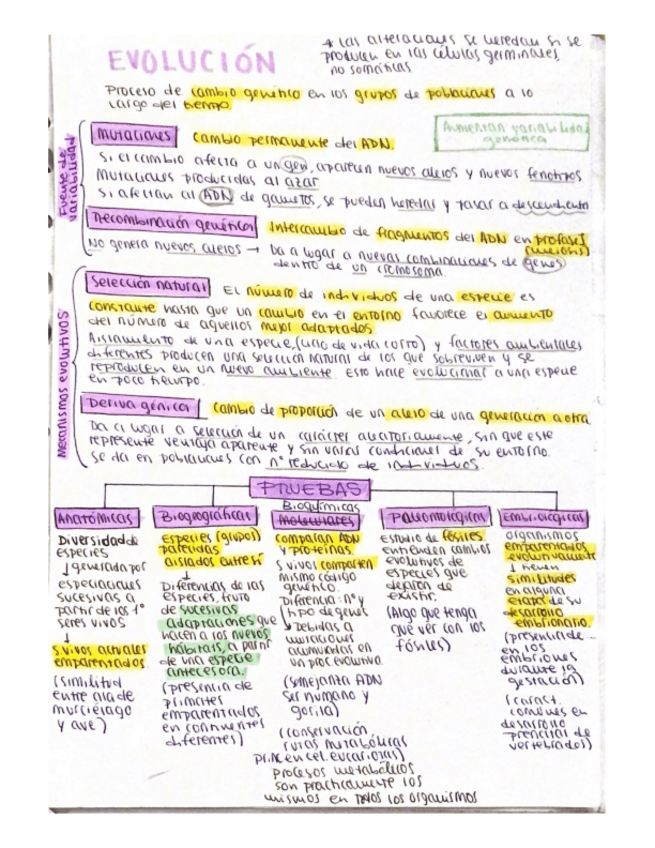 EVOLUCIÓN
* Las alteraciones se heredan si se
producen en las células germinales,
no somáticas
Proceso de cambio genético en los grupos de poblaciones a lo
largo del tiempo.
Fuente de
variabilidad
Mutaciones
Cambio permanente del ADN.
Aumentan variabilidad
genética
Si el cambio afecta a un gen, aparecen nuevos alelos y nuevos fenotipos
Mutaciones producidas al azar.
Si afectan al ADN de gametos, se pueden heredar y pasar a descendiente
Recombinación genética
Intercambio de fragmentos del ADN en profase I
(meiosis)
No genera nuevos alelos → Da a lugar a nuevas combinaciones de genes
dentro de un cromosoma.
Mecanismos evolutivos
Selección natural
El número de individuos de una especie es
constante hasta que un cambio en el entorno favorece el aumento
del número de aquellos mejor adaptados.
Aislamiento de una especie, (ciclo de vida corto) y factores ambientales
diferentes producen una selección natural de los que sobreviven y se
reproducen en un nuevo ambiente. Esto hace evolucionar a una especie
en poco tiempo.
Deriva génica
Cambio de proporción de un alelo de una generación a otra
Da a lugar a selección de un carácter aleatoriamente, sin que este
represente ventaja aparente y sin varias condiciones de su entorno.
Se da en poblaciones con nº reducido de individuos.
PRUEBAS
Anatómicas
Diversidad de
especies
↓ generada por
especiaciones
sucesivas a
partir de los 1º
seres vivos
↓
s.vivos actuales
emparentados.
(similitud
entre ala de
murciélago
y ave)
Biogeográficas
Especies (grupos)
parecidas
aisladas entre sí
↓
Diferencias de las
especies, fruto
de sucesivas
adaptaciones que
hacen a los nuevos
hábitats, a partir
de una especie
antecesora.
(presencia de
primates
emparentados
en continentes
diferentes)
Bioquímicas
Moleculares
Comparan ADN
y proteínas.
S vivos comparten
mismo código
genético.
Diferencia: nº y
tipo de genes
↳ Debidas a
mutaciones
acumuladas en
un proc evolutivo.
(semejanza ADN
ser humano y
gorila)
(conservación
rutas metabólicas
princ en cel. eucariotas)
procesos metabólicos
son practicamente los
mismos en todos los organismos
Paleontológicas
Estudio de fósiles
entienden cambios
evolutivos de
especies que
dejaron de
existir.
(Algo que tenga
que ver con los
fósiles)
Embriológicas
organismos
emparentados
evolutivamente
↓ tienen
similitudes
en alguna
etapa de su
desarrollo
embrionario.
(presencia de...
en los
embriones
durante la
gestación)
(caract.
comunes en
desarrollo
prenatal de
vertebrados)